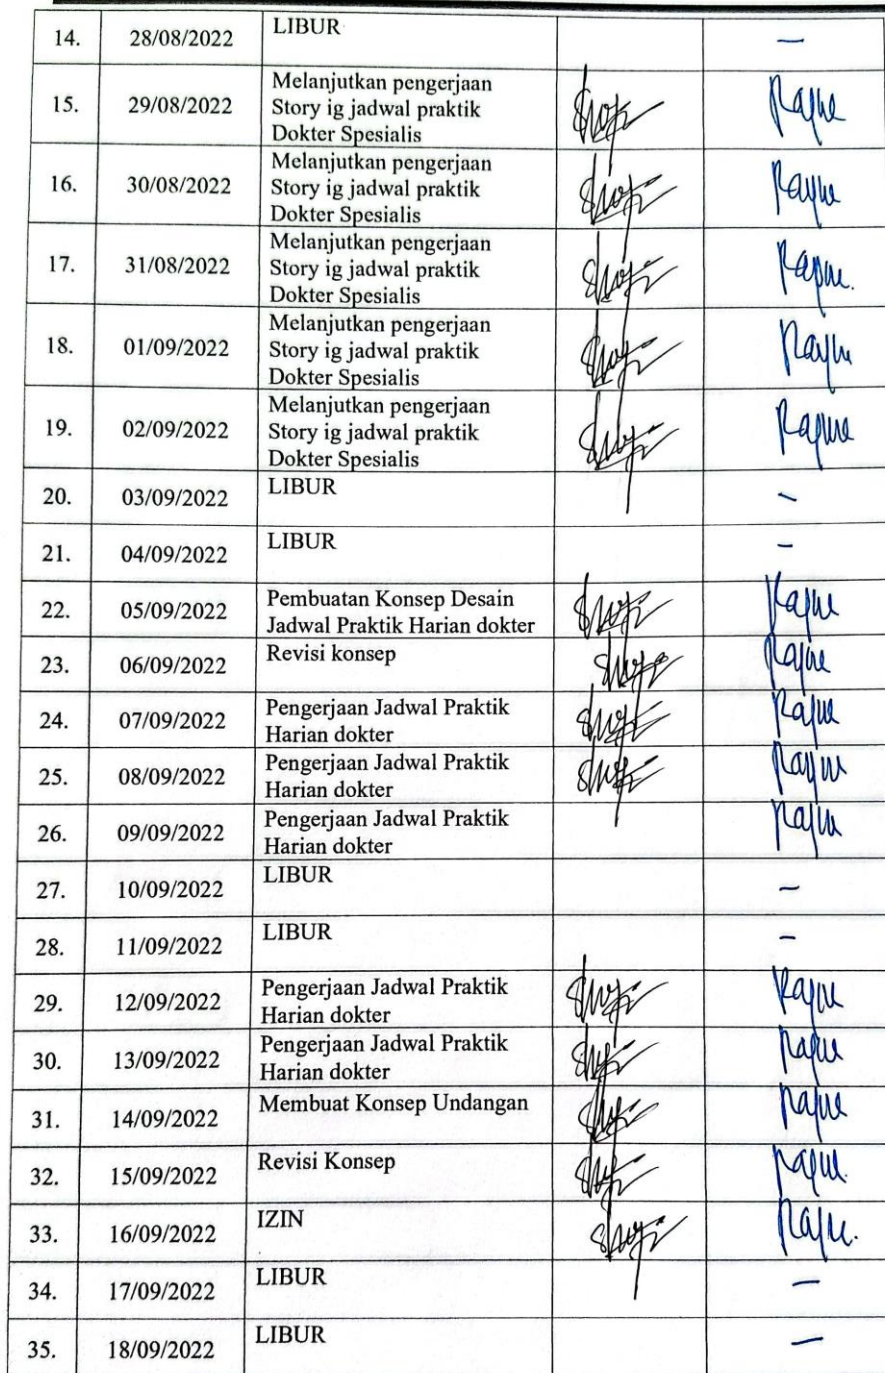 14. 28/08/2022 LIBUR —
15. 29/08/2022 Melanjutkan pengerjaan
Story ig jadwal praktik
Dokter Spesialis
16. 30/08/2022 Melanjutkan pengerjaan
Story ig jadwal praktik
Dokter Spesialis
17. 31/08/2022 Melanjutkan pengerjaan
Story ig jadwal praktik
Dokter Spesialis
18. 01/09/2022 Melanjutkan pengerjaan
Story ig jadwal praktik
Dokter Spesialis
19. 02/09/2022 Melanjutkan pengerjaan
Story ig jadwal praktik
Dokter Spesialis
20. 03/09/2022 LIBUR —
21. 04/09/2022 LIBUR —
22. 05/09/2022 Pembuatan Konsep Desain
Jadwal Praktik Harian dokter
23. 06/09/2022 Revisi konsep
24. 07/09/2022 Pengerjaan Jadwal Praktik
Harian dokter
25. 08/09/2022 Pengerjaan Jadwal Praktik
Harian dokter
26. 09/09/2022 Pengerjaan Jadwal Praktik
Harian dokter
27. 10/09/2022 LIBUR —
28. 11/09/2022 LIBUR —
29. 12/09/2022 Pengerjaan Jadwal Praktik
Harian dokter
30. 13/09/2022 Pengerjaan Jadwal Praktik
Harian dokter
31. 14/09/2022 Membuat Konsep Undangan
32. 15/09/2022 Revisi Konsep
33. 16/09/2022 IZIN
34. 17/09/2022 LIBUR —
35. 18/09/2022 LIBUR —